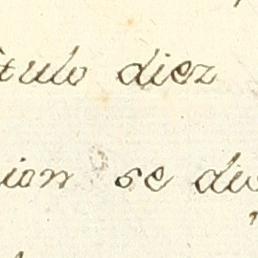 ítulo diez
ion se di